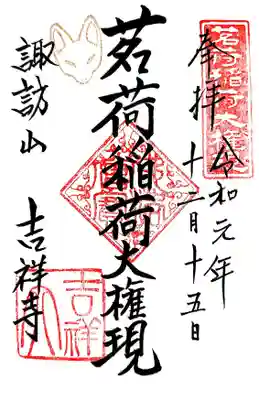 奉拝
令和元年
十二月十五日
茗荷稲荷大権現
諏訪山
吉祥寺
茗荷稲荷大権現
吉祥